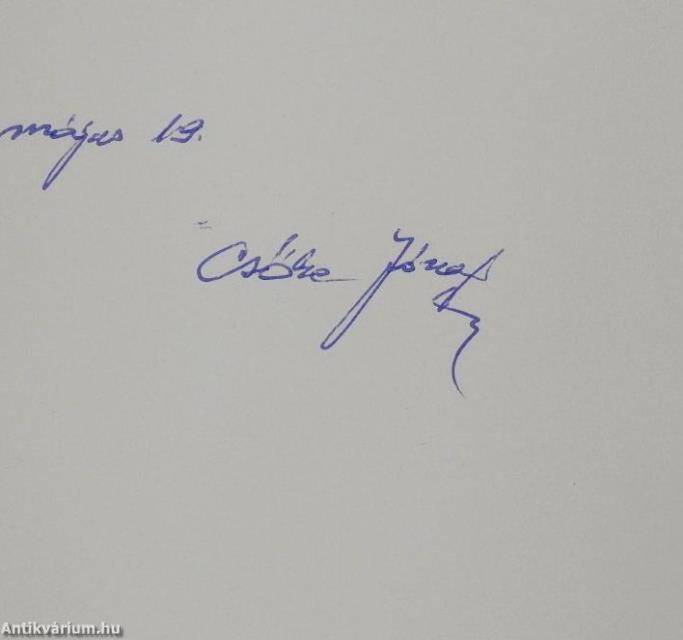 május 19.
Csőke József
Antikvárium.hu